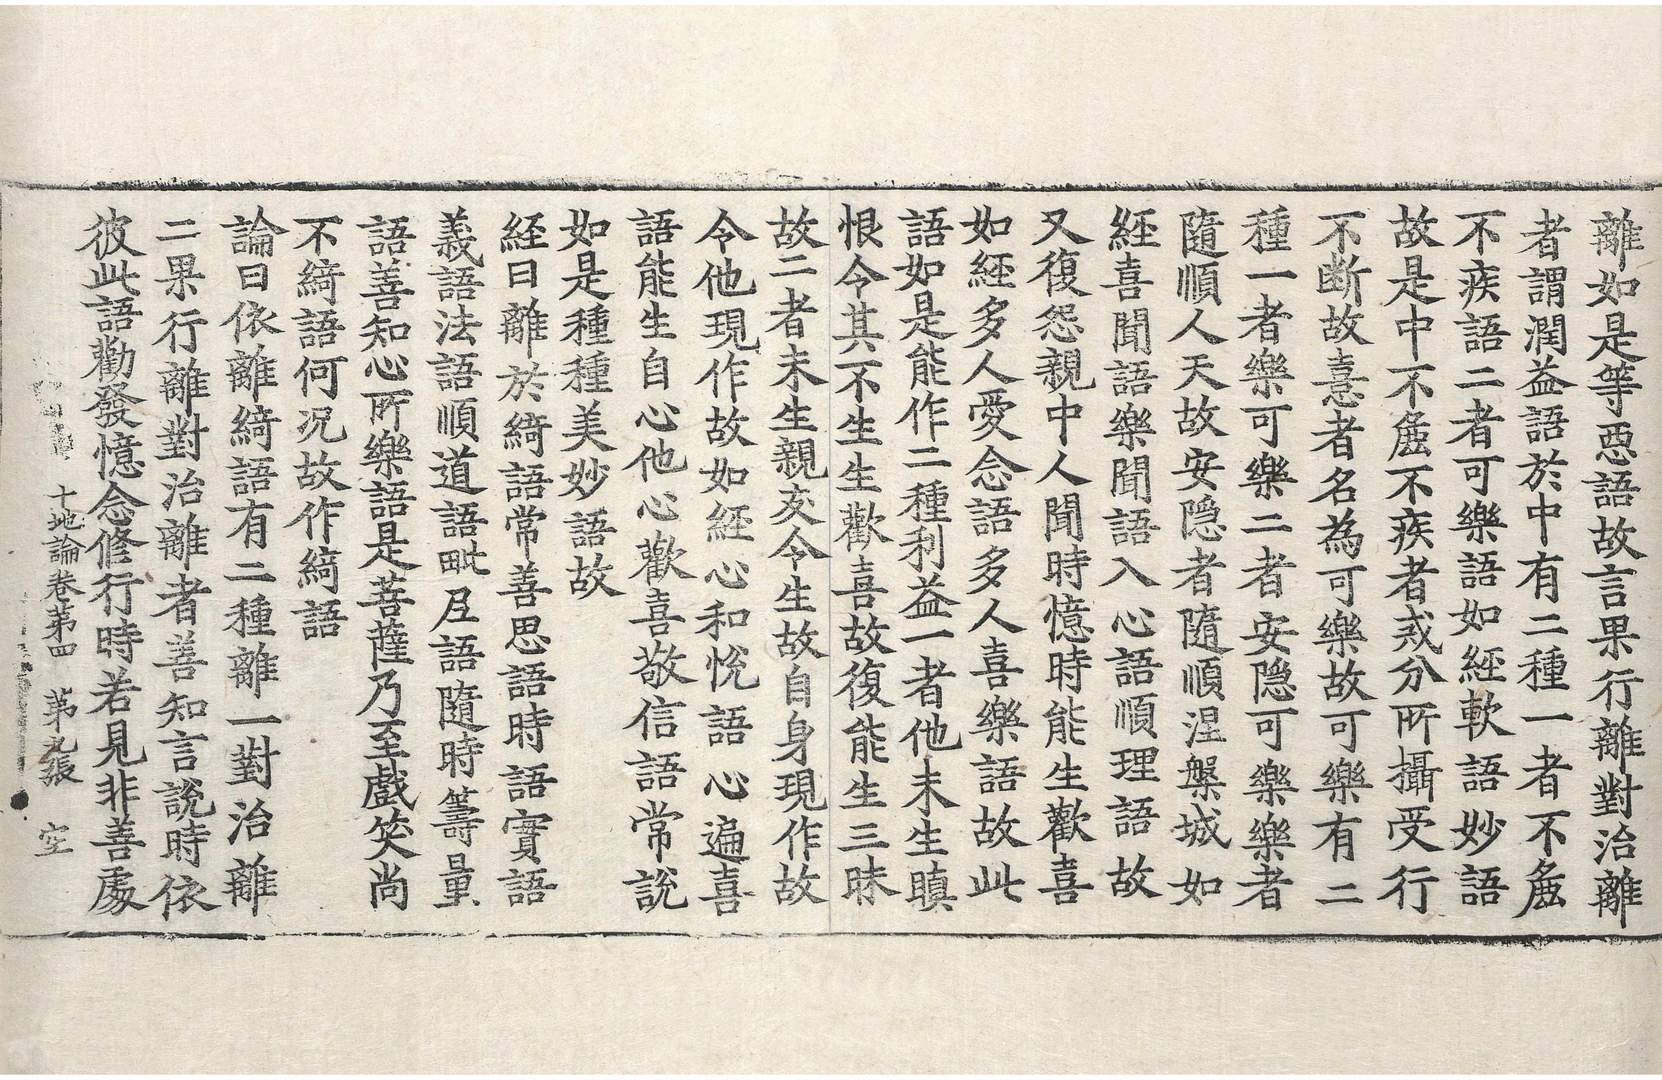 離如是等惡語故言果行離對治離
者謂潤益語於中有二種一者不麁
不疾語二者可樂語如經軟語妙語
故是中不麁不疾者戒分所攝受行
不断故憙者名為可樂故可樂有二
種一者樂可樂二者安隱可樂樂者
隨順人天故安隱者隨順涅槃城如
經喜聞語樂聞語入心語順理語故
又復怨親中人聞時憶時能生歡喜
如經多人愛念語多人喜樂語故此
語如是能作二種利益一者他未生瞋
恨令其不生生歡喜故復能生三昧
故二者未生親友令生故自身現作故
令他現作故如經心和悅語心遍喜
語能生自心他心歡喜敬信語常說
如是種種美妙語故
經曰離於綺語常善思語時語實語
義語法語順道語毗尼語隨時籌量
語善知心所樂語是菩薩乃至戲笑尚
不綺語何况故作綺語
論曰依離綺語有二種離一對治離
二果行離對治離者善知言說時依
彼此語勸發憶念修行時若見非善處
十地論卷第四　第九張　空